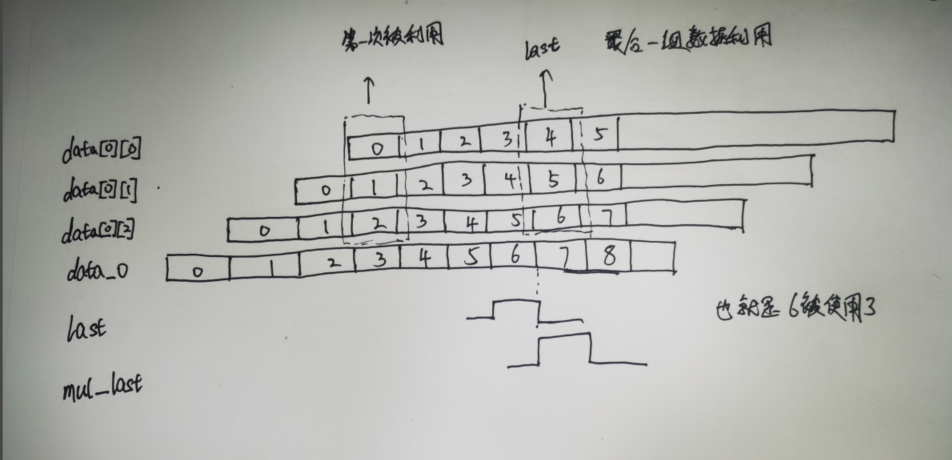 第一次被利用
last 最后一组数据利用
data[0][0] 0 1 2 3 4 5
data[0][1] 0 1 2 3 4 5 6
data[0][2] 0 1 2 3 4 5 6 7
data_0 0 1 2 3 4 5 6 7 8
last 也就是6被使用了
mul_last